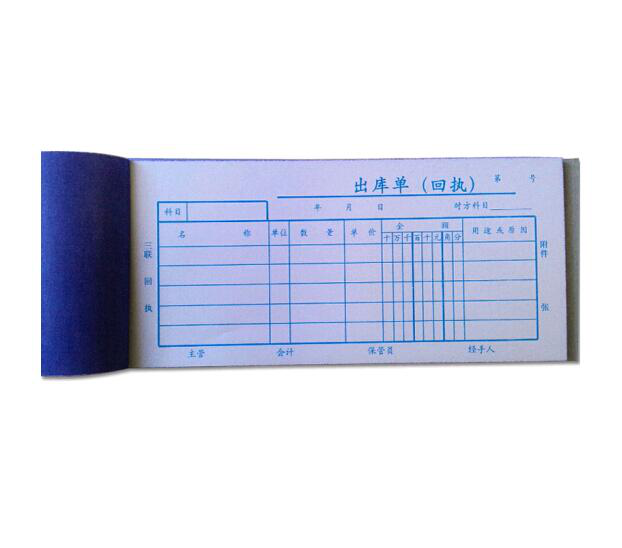 出库单（回执） 第 号
科目 年 月 日 对方科目
名 称 单位 数 量 单 价 金 额 用途或原因
十 万 千 百 十 元 角 分
三联 回执
附件 张
主管 会计 保管员 经手人